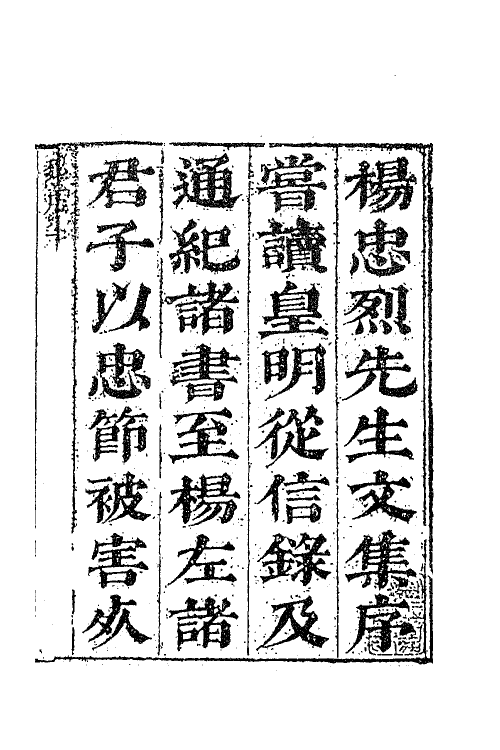 楊忠烈先生文集序
嘗讀皇明從信錄及
通紀諸書至楊左諸
君子以忠節被害